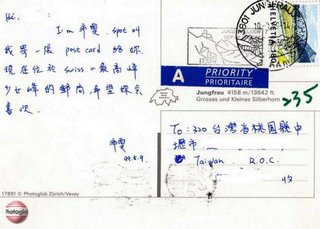 Hi,
I'm 希雯, spot 叫
我寄一張 post card 給你
現在位於 swiss 最高峰
少女峰的郵局,希望你會
喜歡.
希雯
3801 JUNGFRAU
HELVETIA
A PRIORITY
PRIORITAIRE
Jungfrau 4158 m/13642 ft.
Grosses und Kleines Silberhorn
235
To: 320 台灣省桃園縣中
壢市
Taiwan R.O.C.
收
17891 © Photoglob Zürich/Vevey
Photoglob